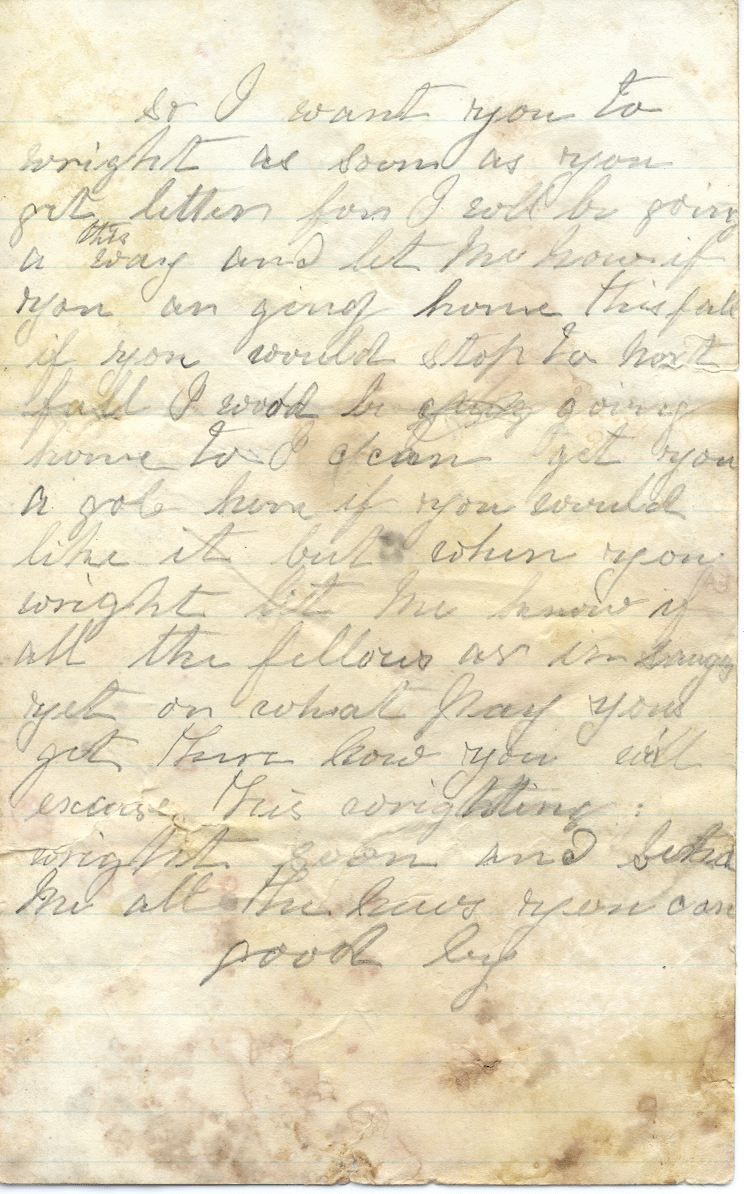 so I want you to
wright as soon as you
get letter for I will be going
a this way and let me know if
you an ging home this fall
if you would stop to nort
fall I wood be going
home to I can get you
a gob here if you would
like it but when you
wright let me know if
all the fellows ar in
yet or what pay you
get there how you will
excuse this wrighting :
wright soon and
me all the news you can
good by